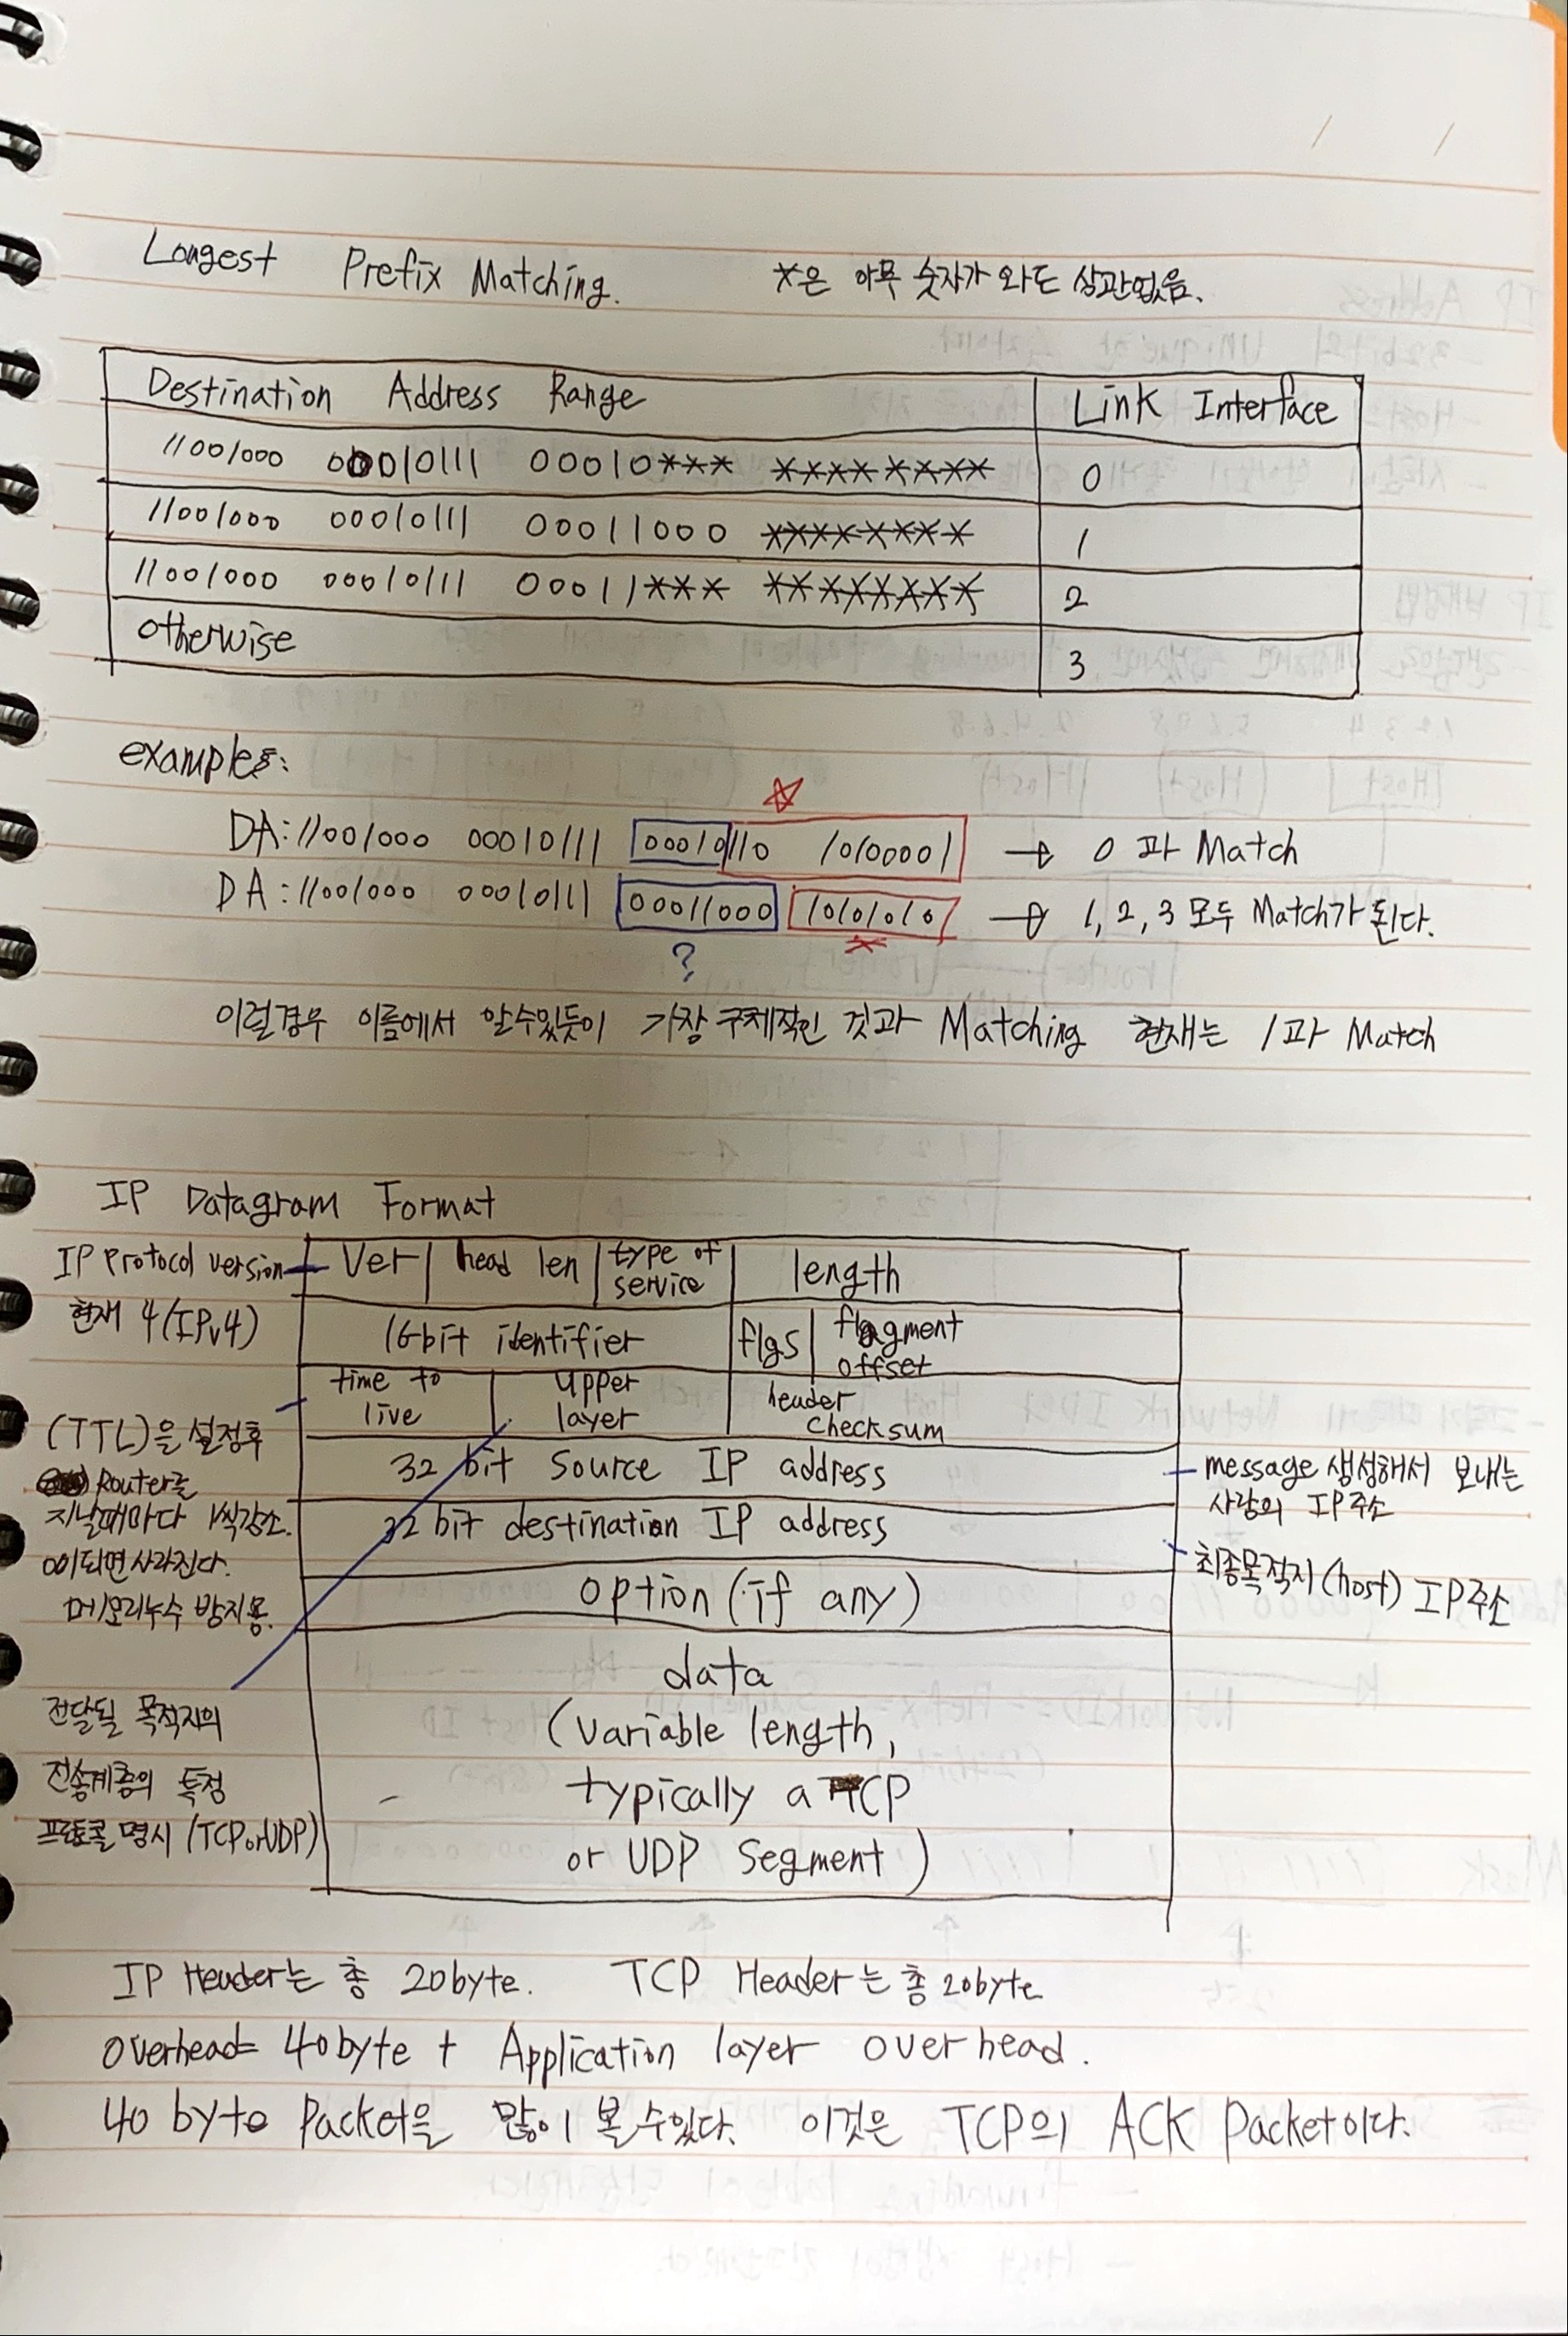 Longest Prefix Matching. *은 아무 숫자가 와도 상관없음.
Destination Address Range Link Interface
11001000 00010111 00010*** ******** 0
11001000 00010111 00011000 ******** 1
11001000 00010111 00011*** ******** 2
otherwise 3
examples:
DA: 11001000 00010111 00010110 10100001 → 0 과 Match
DA: 11001000 00010111 00011000 10101010 → 1, 2, 3 모두 Match가 된다.
?
이럴경우 이름에서 알수있듯이 가장 구체적인 것과 Matching 현재는 1과 Match
IP Datagram Format
IP Protocol version
현재 4 (IPv4)
Ver head len type of service length
16-bit identifier flgs flagment offset
time to live upper layer header checksum
32 bit source IP address
32 bit destination IP address
option (if any)
data
(variable length,
typically a TCP
or UDP segment)
(TTL)을 설정후
Router를
지날때마다 1씩감소.
0이되면 사라진다.
메모리누수 방지용.
전달될 목적지의
전송계층의 특정
프로토콜 명시 (TCP or UDP)
message 생성해서 보내는
사람의 IP주소
최종목적지 (host) IP주소
IP Header는 총 20byte. TCP Header는 총 20byte
overhead= 40byte + Application layer overhead.
40 byte Packet을 많이 볼 수있다. 이것은 TCP의 ACK Packet이다.